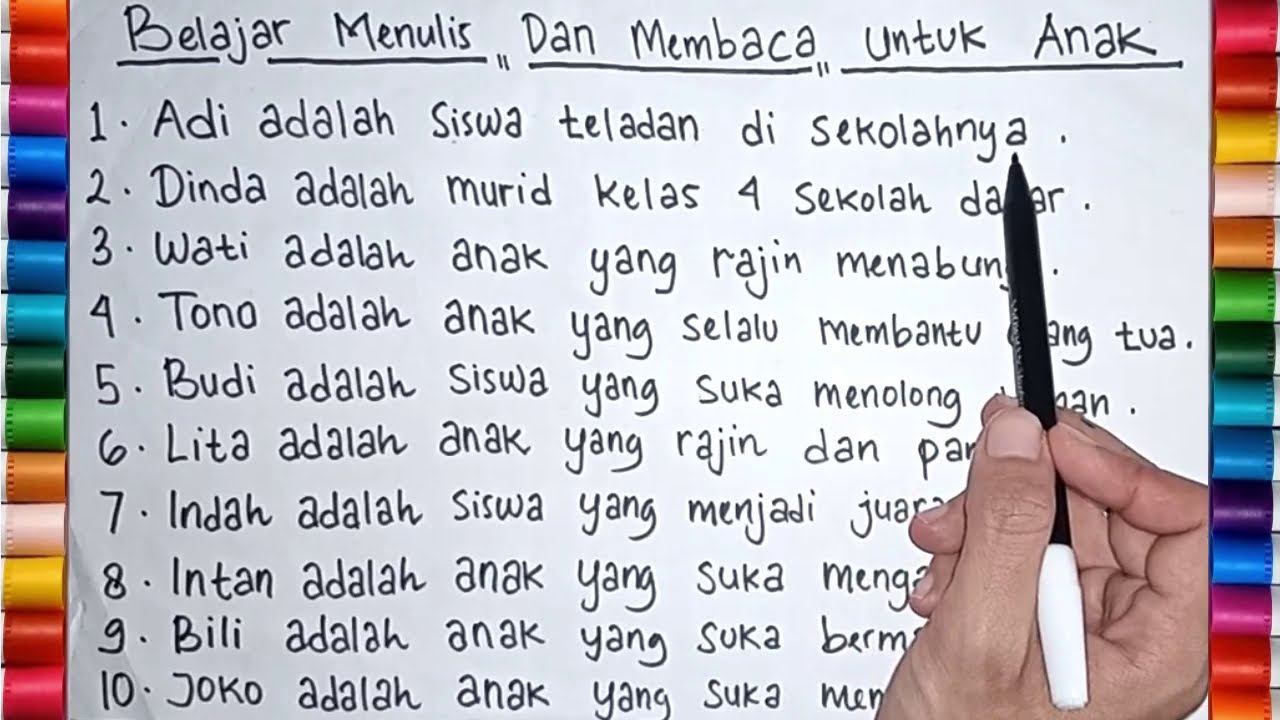 Belajar Menulis Dan Membaca untuk Anak
1. Adi adalah siswa teladan di sekolahnya.
2. Dinda adalah murid kelas 4 sekolah dasar.
3. Wati adalah anak yang rajin menabung.
4. Tono adalah anak yang selalu membantu orang tua.
5. Budi adalah siswa yang suka menolong
6. Lita adalah anak yang rajin dan
7. Indah adalah siswa yang menjadi
8. Intan adalah anak yang suka
9. Bili adalah anak yang suka
10. Joko adalah anak yang suka